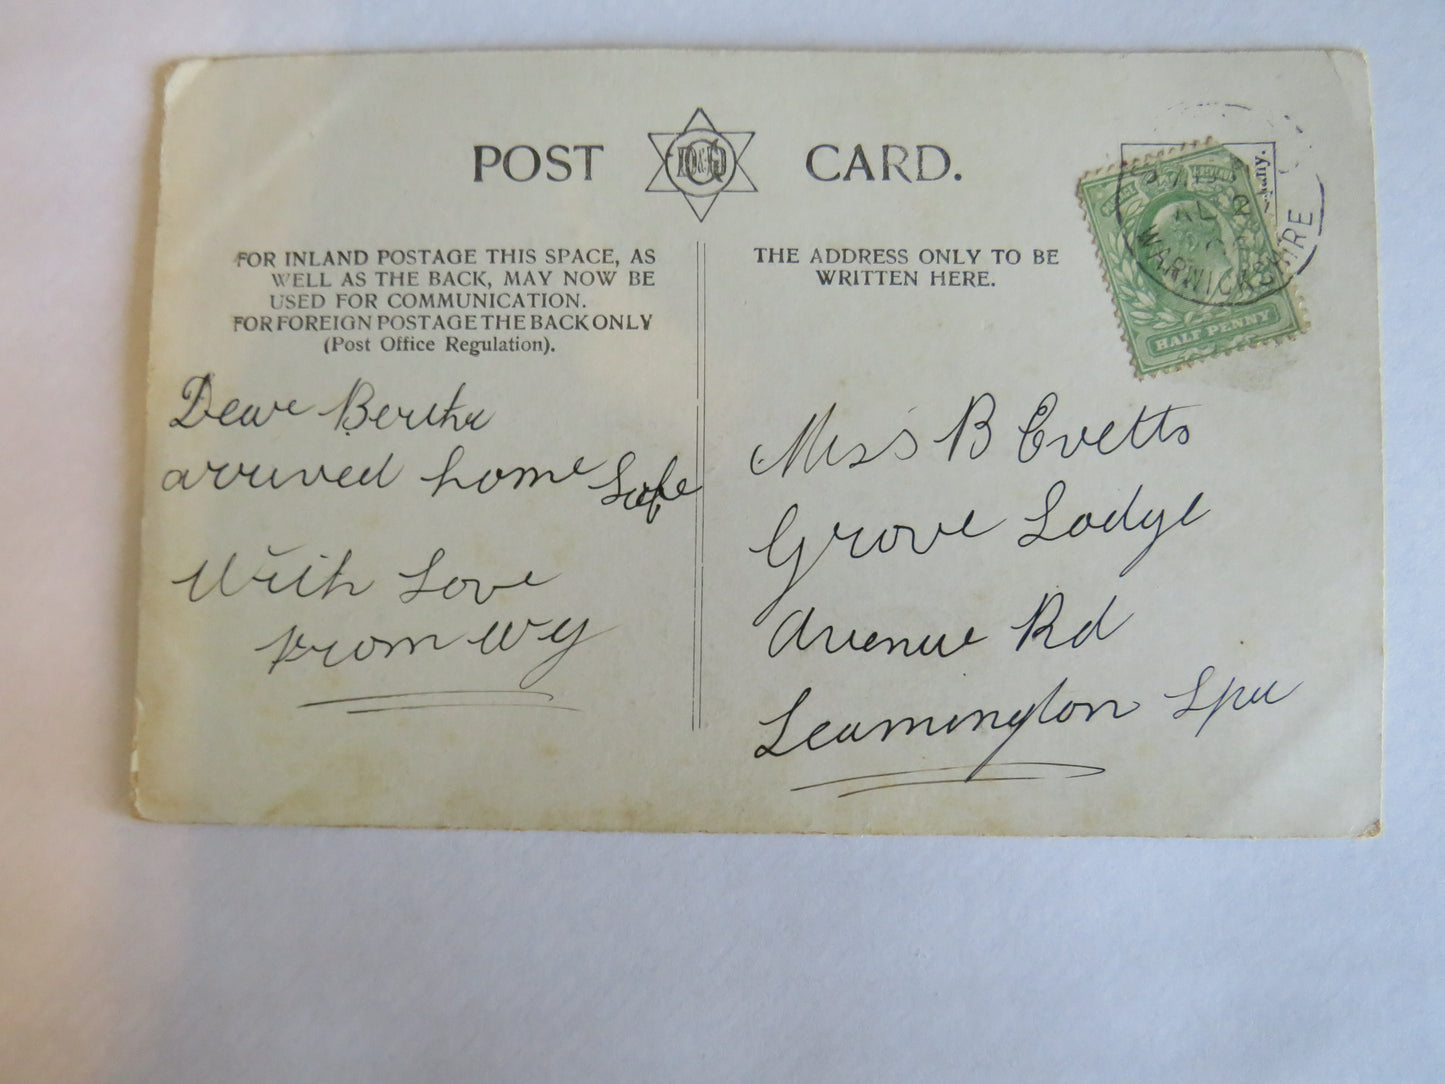 POST CARD.
FOR INLAND POSTAGE THIS SPACE, AS
WELL AS THE BACK, MAY NOW BE
USED FOR COMMUNICATION.
FOR FOREIGN POSTAGE THE BACK ONLY
(Post Office Regulation).
THE ADDRESS ONLY TO BE
WRITTEN HERE.
WARWICKSHIRE
HALF PENNY
Dear Bertha
arrived home Safe
With Love
from WY
Miss B Evetts
Grove Lodge
Avenue Rd
Leamington Spa